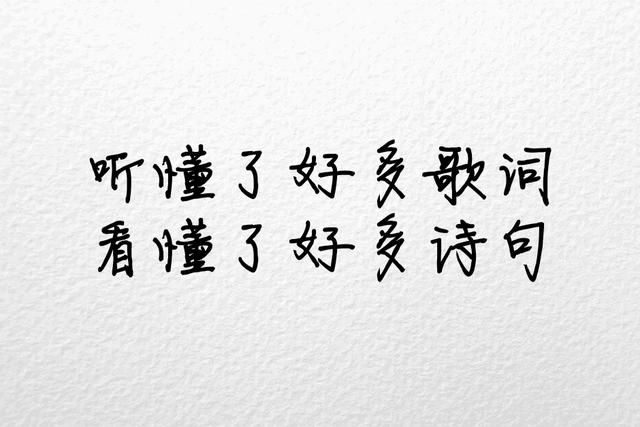 听懂了好多歌词
看懂了好多诗句